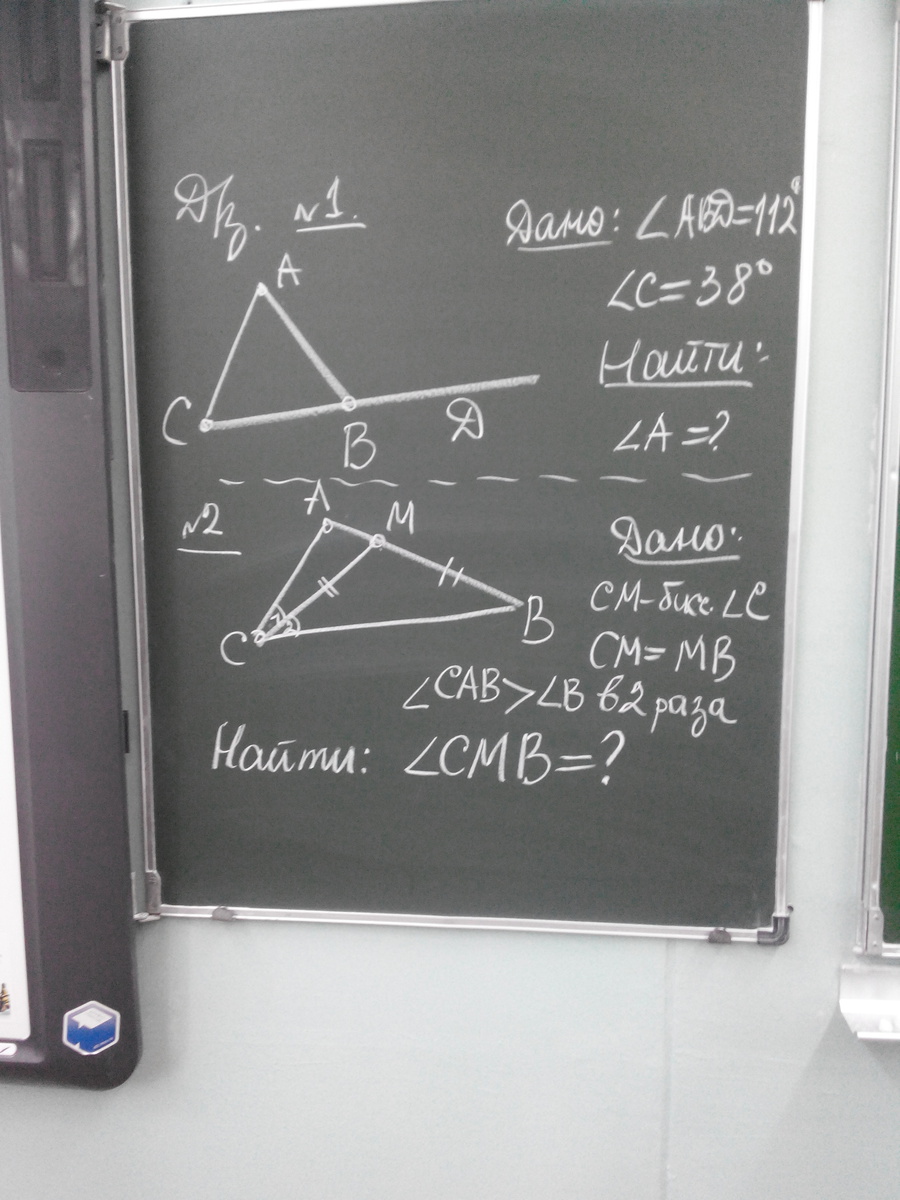 Д/з. №1.
Дано: ∠ABD=112°
∠C=38°
Найти:
∠A=?
A
C
B
D
№2
A
M
C
B
1
2
Дано:
CM-бисс. ∠C
CM=MB
∠CAB>∠B в 2 раза
Найти: ∠CMB=?